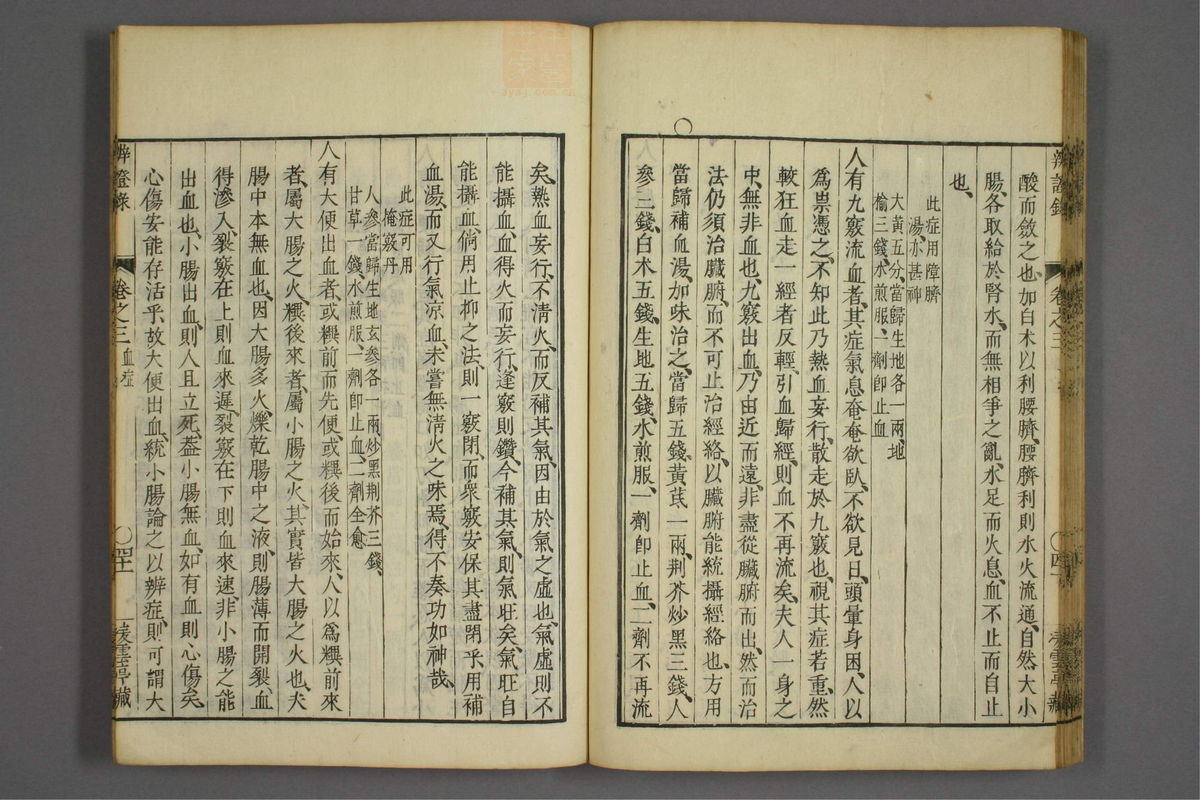 酸而斂之也、加白木以利腰臍、腰臍利則水火流通、自然大小
腸、各取給於腎水、而無相爭之亂、水足而火息、血不止而自止
也、
此症用障臍
湯、亦甚神
大黃五分、當歸生地各一兩、地
榆三錢、水煎服、一劑卽止血
人有九竅流血者、其症氣息奄奄欲臥、不欲見日、頭暈身困、人以
爲祟憑之、不知此乃熱血妄行、散走於九竅也、視其症若重、然
較狂血走一經者反輕、引血歸經、則血不再流矣、夫人一身之
中、無非血也、九竅出血、乃由近而遠、非盡從臟腑而出、然而治
法仍須治臟腑、而不可止治經絡、以臟腑能統攝經絡也、方用
當歸補血湯、加味治之、當歸五錢、黃芪一兩、荆芥炒黑三錢、人
參三錢、白术五錢、生地五錢、水煎服、一劑卽止血、二劑不再流
辨證錄
卷之三
凌雲亭藏
矣、熱血妄行、不淸火、而反補其氣、因由於氣之虛也、氣虛則不
能攝血、血得火而妄行、逢竅則鑽、今補其氣、則氣旺矣、氣旺自
能攝血、倘用止抑之法、則一竅閉、而衆竅安保其盡閉乎、用補
血湯、而又行氣凉血、未嘗無淸火之味焉、得不奏功如神哉、
此症可用
掩竅丹
人參當歸生地玄參各一兩、炒黑荆芥三錢、
甘草一錢、水煎服、一劑卽止血、二劑全愈
人有大便出血者、或糞前而先便、或糞後而始來、人以爲糞前來
者、屬大腸之火、糞後來者、屬小腸之火、其實皆大腸之火也、夫
腸中本無血也、因大腸多火、爍乾腸中之液、則腸薄而開裂、血
得滲入、裂竅在上則血來遲、裂竅在下則血來速、非小腸之能
出血也、小腸出血、則人且立死、蓋小腸無血、如有血則心傷矣、
心傷安能存活乎、故大便出血、統小腸論之以辨症、則可謂大
辨證錄
卷之三
血症
凌雲亭藏